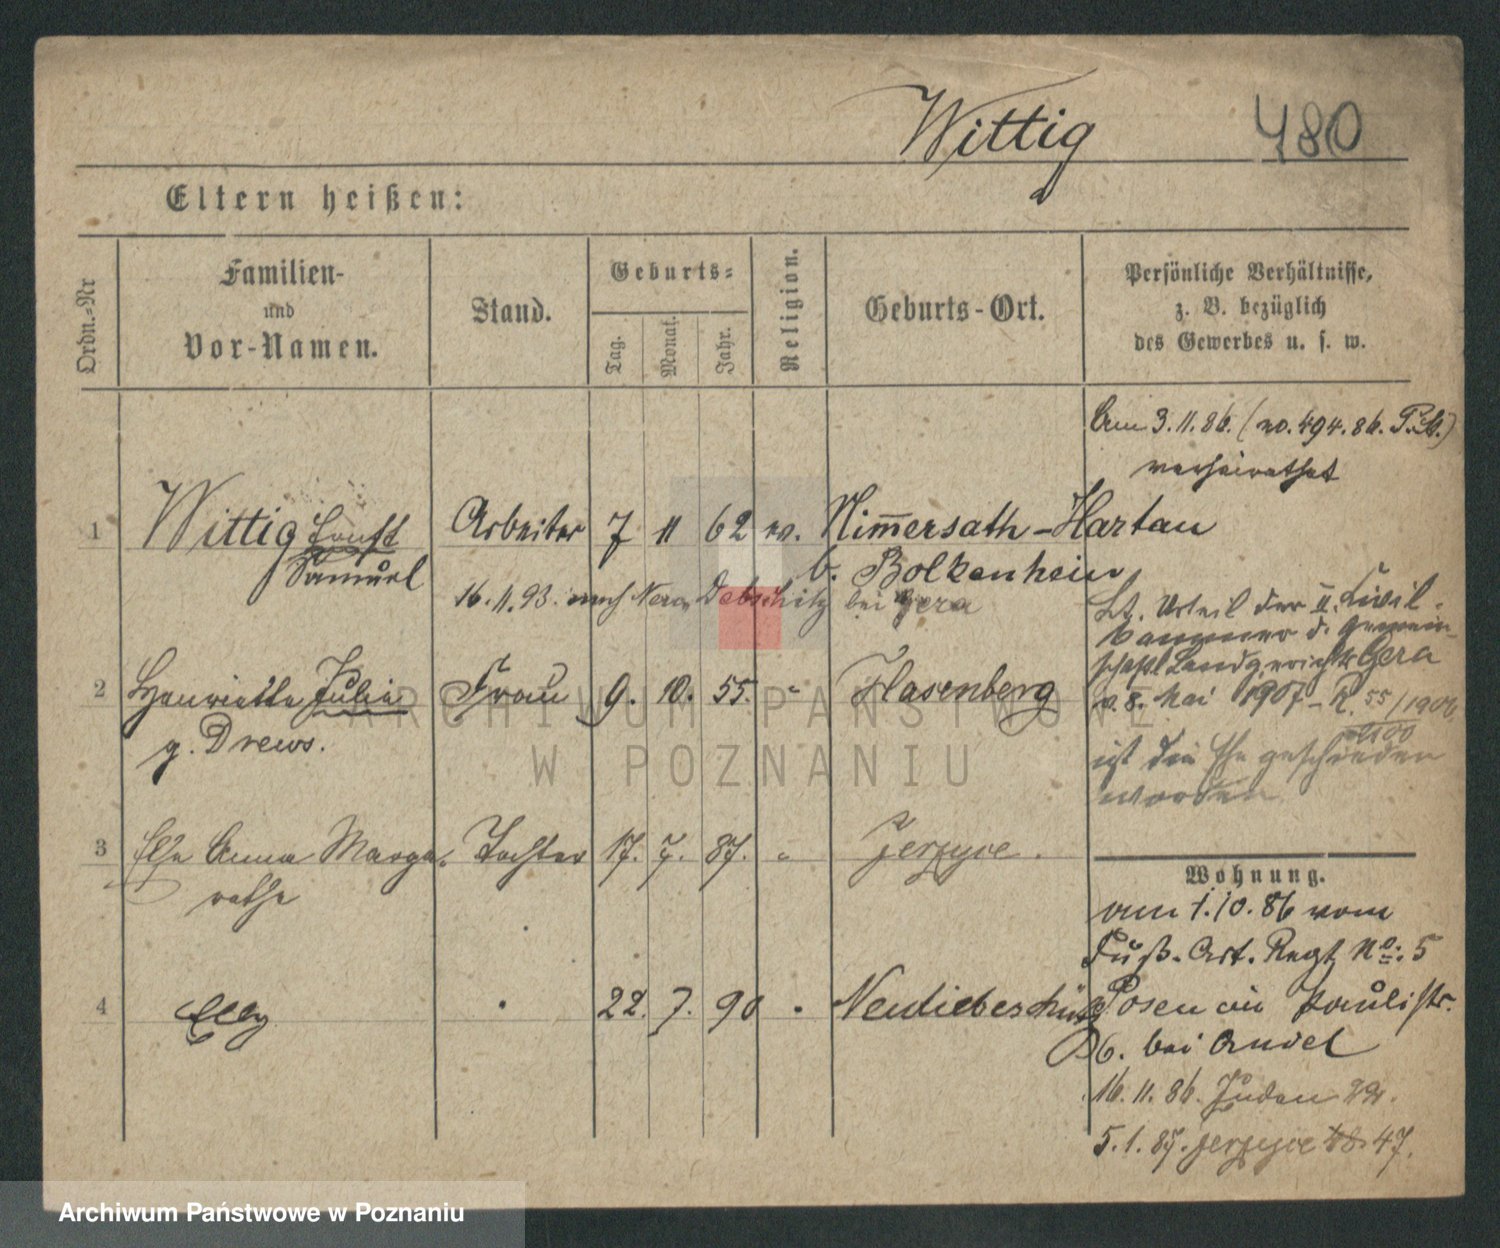 Wittig 480
Eltern heißen:
Ordn.-Nr
Familien-
und
Vor-Namen.
Stand.
Geburts-
Tag.
Monat.
Jahr.
Religion.
Geburts-Ort.
Persönliche Verhältnisse,
z. B. bezüglich
des Gewerbes u. s. w.
Am 3.11.86. (no. 494.86. P.A.)
verheirathet
1 Wittig Ernst Arbeiter 7 11 62 ev. Nim̄ersath-Hartau
Samuel b. Bolkenhein
16.11.93. nach Debschitz bei Gera
Lt. Urteil der II. Civil-
kammer d. gemein-
schaftl Landgerichts Gera
v. 8. Mai 1907 - R. 55/1906
ist die Ehe geschieden
worden
2 Henriette Julie Frau 9. 10. 55. " Hasenberg
g. Drews.
3 Else Anna Marga- Tochter 17. 7. 87. " Jerzyce.
rethe
Wohnung.
am 1.10.86 vom
Fuß. Art. Regt No: 5
4 Elly " 22. 7. 90 " Neuliebeschütz
Posen ein Paulistr.
6. bei Andel
16.11.86. Juden
5.1.87. Jerzyce 47.
ARCHIWUM PAŃSTWOWE
W POZNANIU
Archiwum Państwowe w Poznaniu